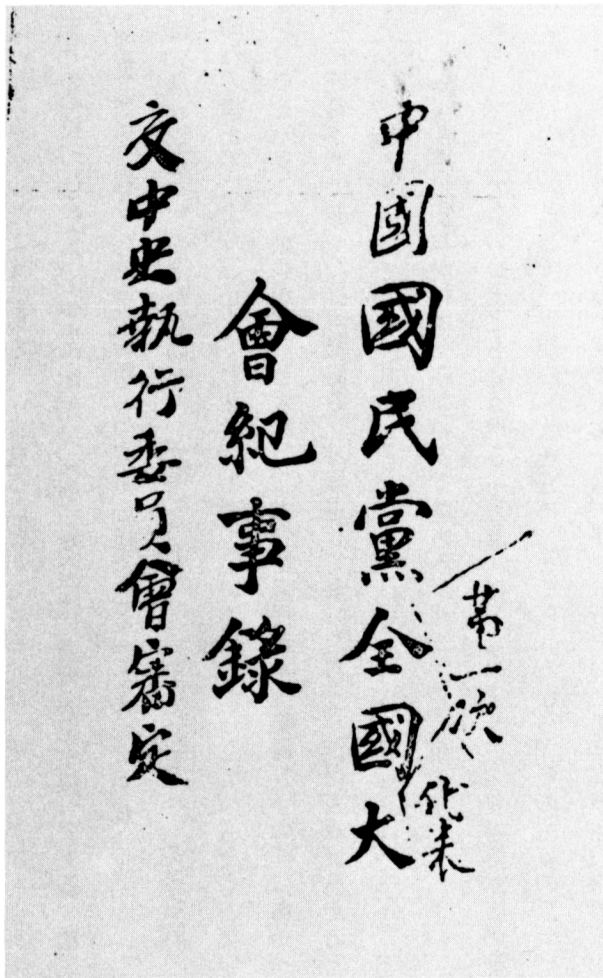 中國國民黨全國大
第一次
代表
會紀事錄
交中央執行委員會審定